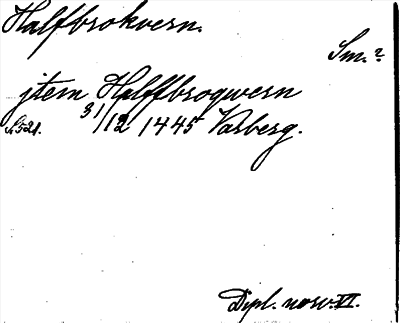 Halfbrokvern.
Sm.?
jtem Halffbroqwern
s. 521. 31/12 1445 Varberg.
Dipl. norv. VI.